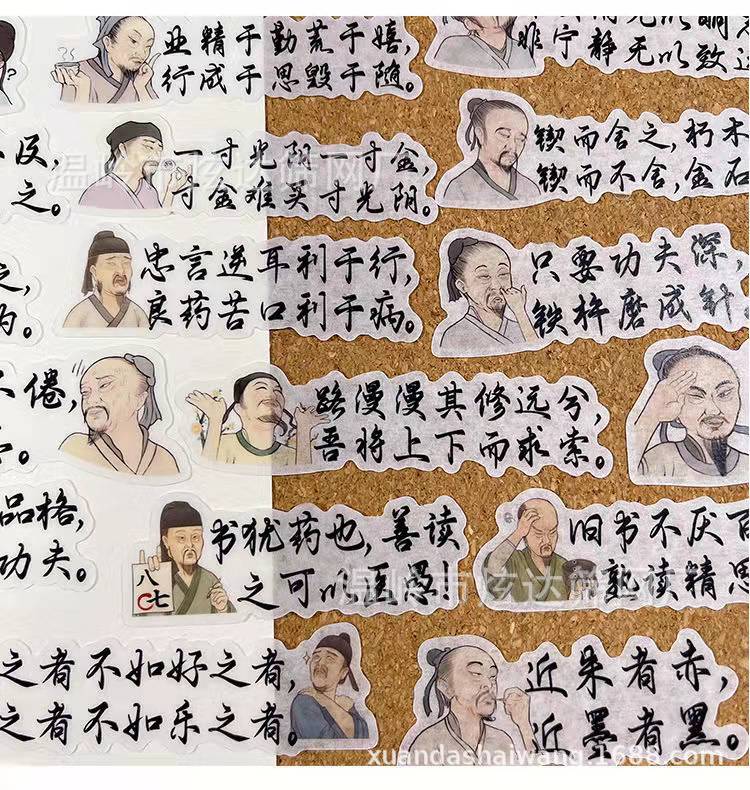 业精于勤荒于嬉,
行成于思毁于随。
非宁静无以致远
之。
一寸光阴一寸金,
寸金难买寸光阴。
锲而舍之,朽木
锲而不舍,金石
温岭市炫达筛网厂
之,
。
忠言逆耳利于行,
良药苦口利于病。
只要功夫深,
铁杵磨成针
不倦,
。
路漫漫其修远兮,
吾将上下而求索。
品格,
功夫。
八
七
书犹药也,善读
之可以医愚!
旧书不厌百
熟读精思
温岭市炫达筛网厂
之者不如好之者,
之者不如乐之者。
近朱者赤,
近墨者黑。
xuandashaiwang.1688.com